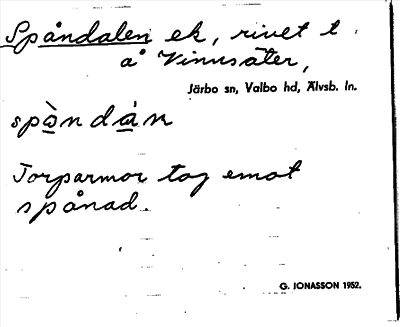 Spåndalen ek, rivet t.
å Vinnsäter,
Järbo sn, Valbo hd, Älvsb. ln.
spå̀ndá̱n
Torparmor tog emot
spånad.
G. JONASSON 1952.